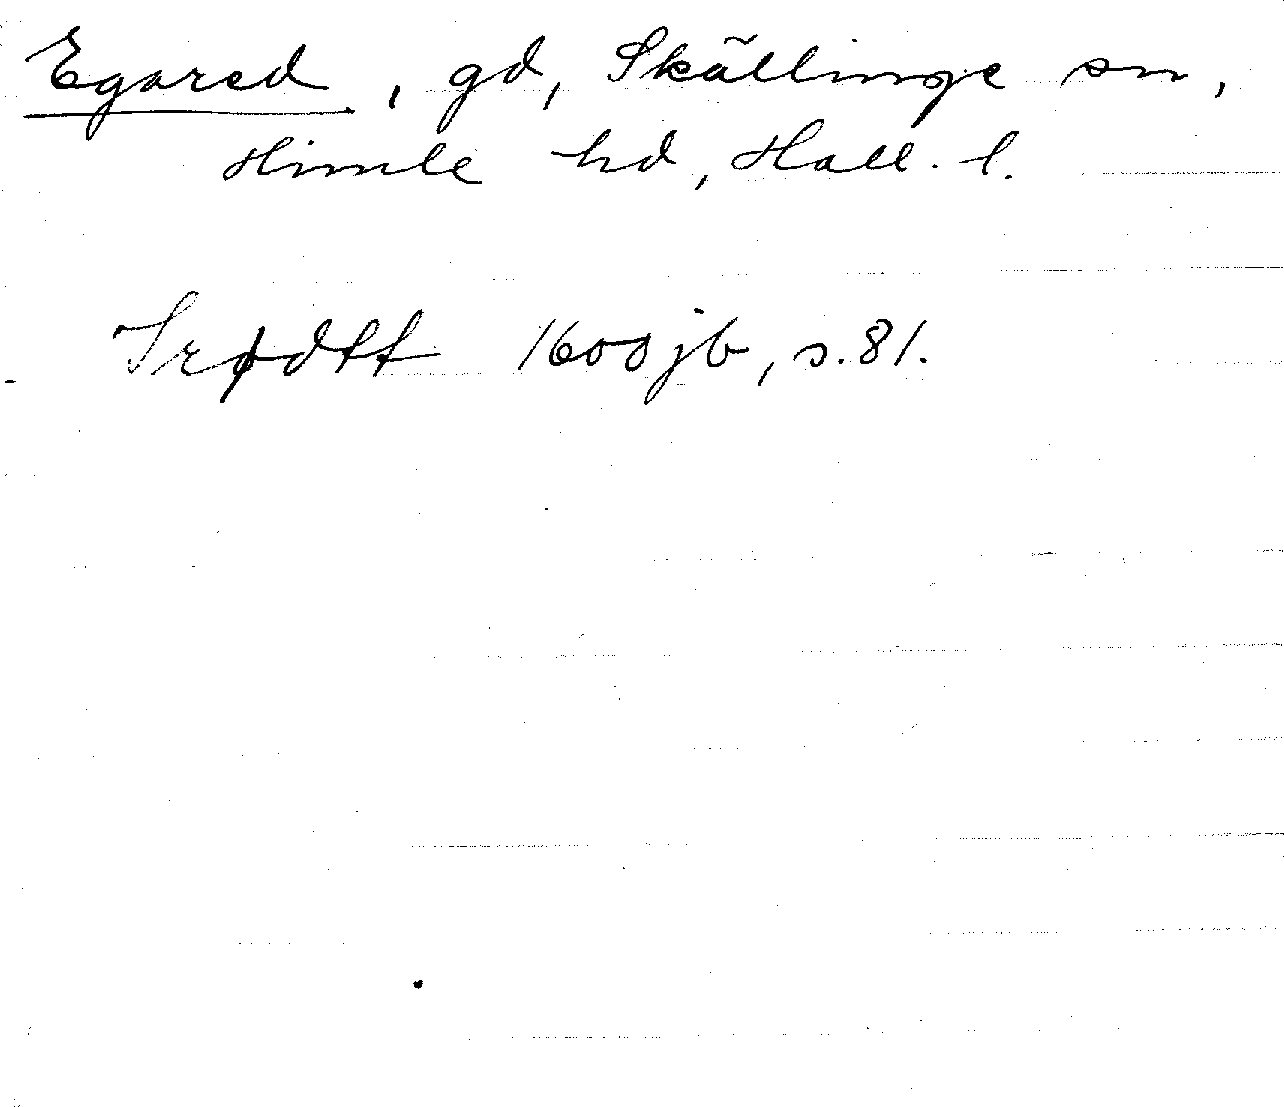 Egared, gd, Skällinge sn,
Himle hd, Hall. l.
Irødtt 1600 jb, s. 81.